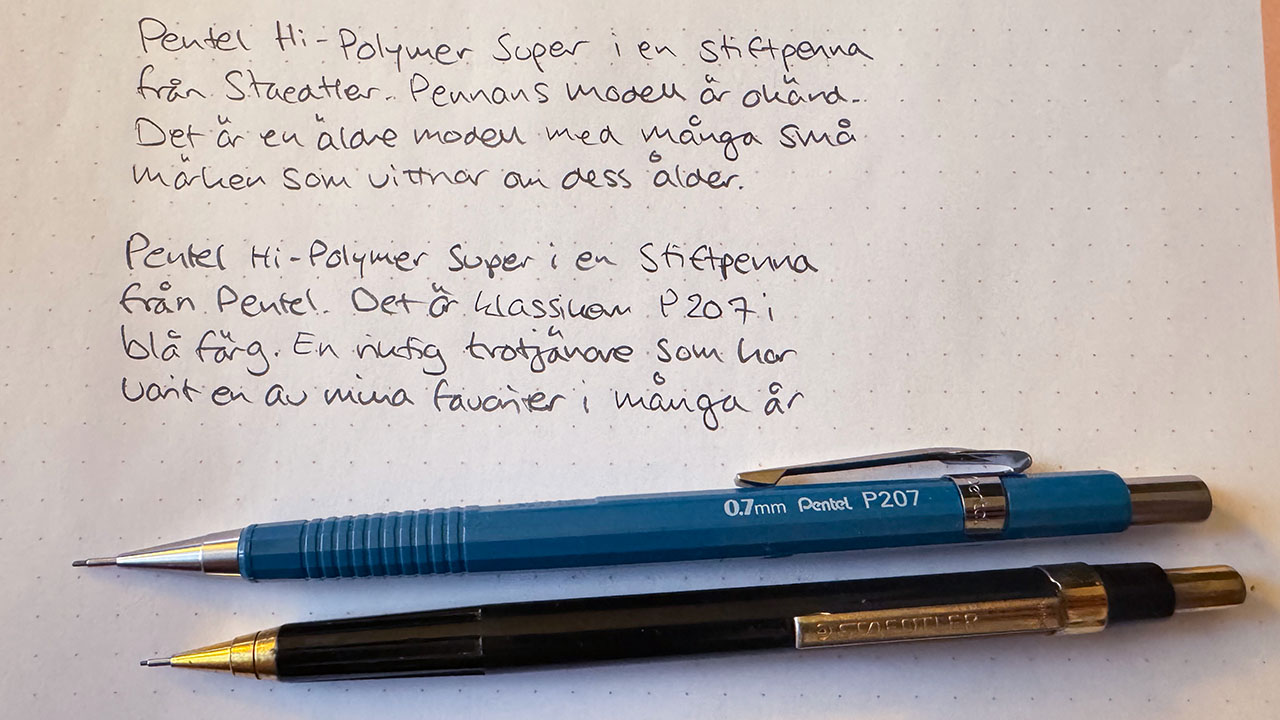 Pentel Hi-Polymer Super i en stiftpenna
från Staedtler. Pennans modell är okänd.
Det är en äldre modell med många små
märken som vittnar om dess ålder.
Pentel Hi-Polymer Super i en Stiftpenna
från Pentel. Det är klassikern P207 i
blå färg. En riktig trotjänare som har
varit en av mina favoriter i många år
0.7mm Pentel P207
STAEDTLER